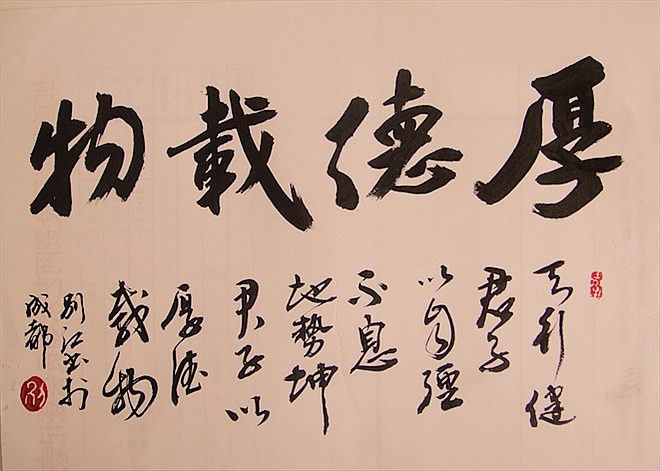 厚德載物
天行健
君子
以自强
不息
地勢坤
君子以
厚德
載物
别江書於
成都